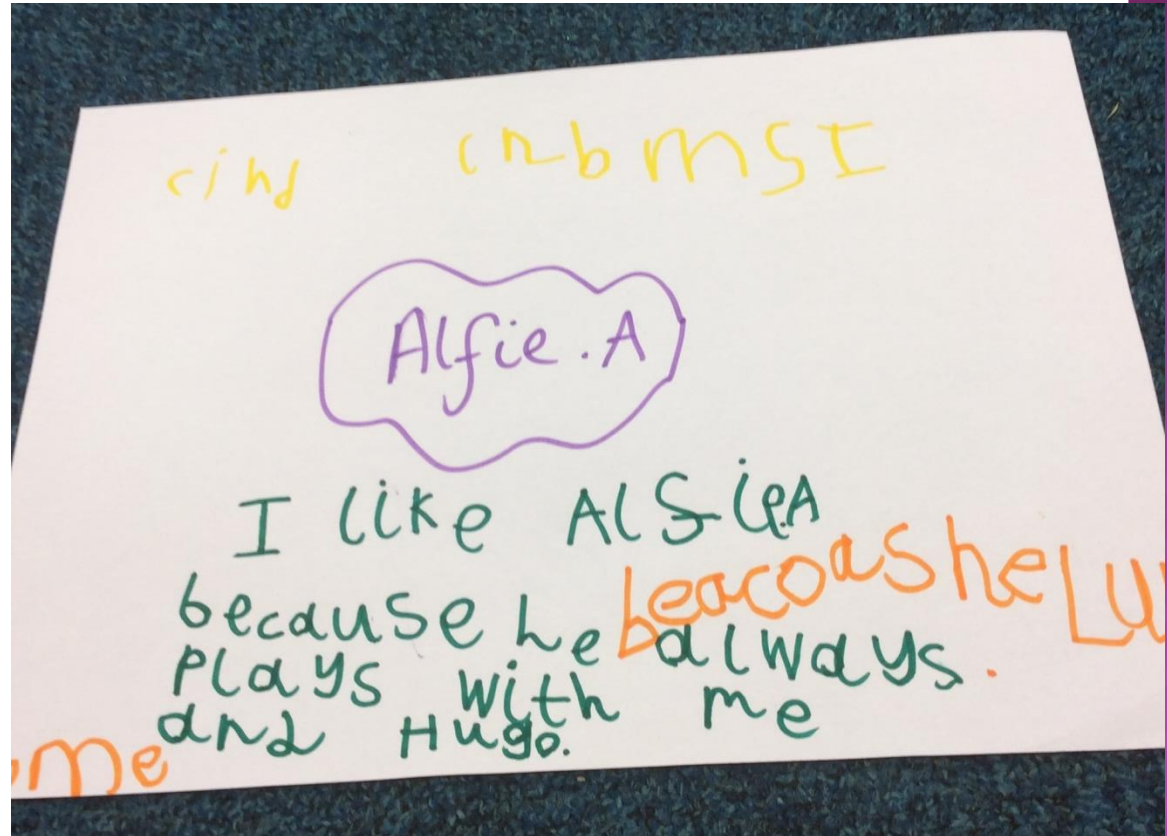 cind cnbmSI
Alfie.A
I like Alfie.A
because he always.
plays with me
and Hugo.
beacoasheLu
me